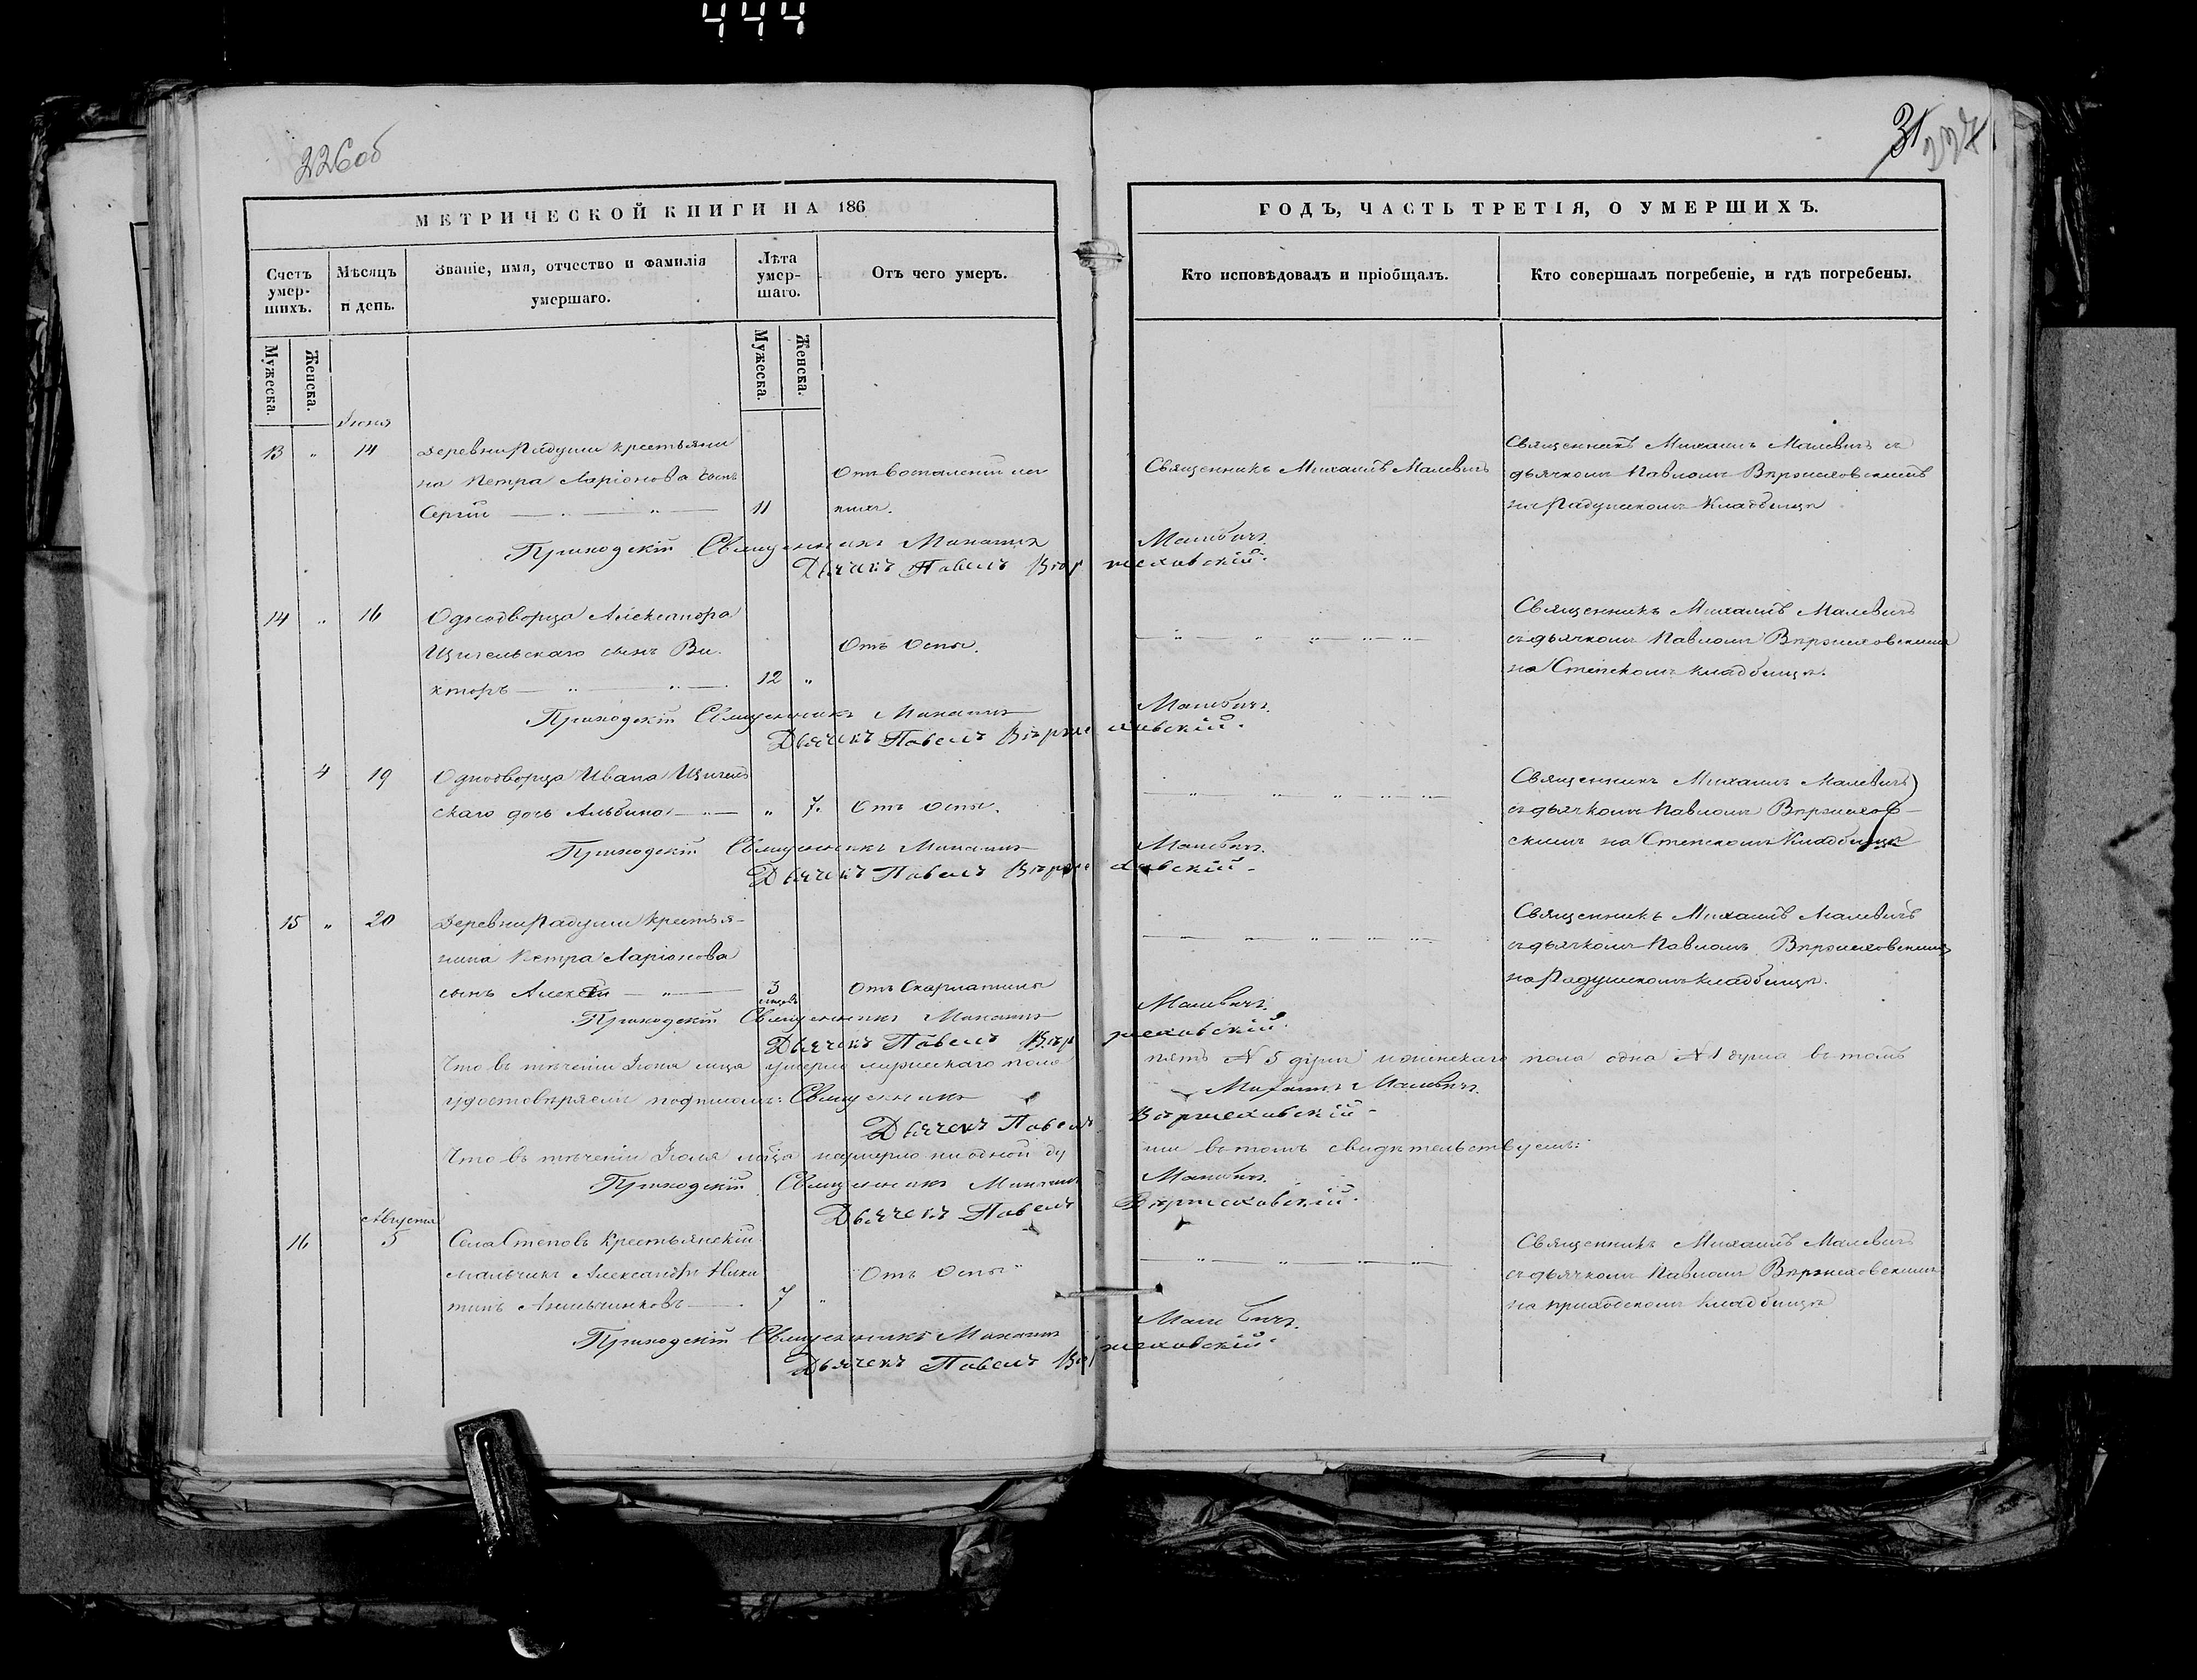 444
226об
31
227
МЕТРИЧЕСКОЙ КНИГИ НА 186
ГОДЪ, ЧАСТЬ ТРЕТІЯ, О УМЕРШИХЪ.
Счетъ умер-шихъ.
Мѣсяцъ и день.
Званіе, имя, отчество и фамилія умершаго.
Лѣта умер-шаго.
Отъ чего умеръ.
Кто исповѣдовалъ и пріобщалъ.
Кто совершалъ погребеніе, и гдѣ погребены.
Мужеска.
Женска.
Мужеска.
Женска.
Іюня
13 " 14 Деревни Радуши крестьяни
на Петра Ларіонова сынъ
Сергій 11
Отъ воспаленія
Священникъ Михаилъ Малевичъ
Священникъ Михаилъ Малевичъ съ
дьячкомъ Павломъ Вѣржеховскимъ
на Радушскомъ Кладбищѣ
Приходскій Священникъ Михаилъ Малевичъ.
Дьячекъ Павелъ Вѣржеховскій.
14 " 16 Однодворца Александра
сынъ Ви-
кторъ 12 "
Отъ оспы.
Священникъ Михаилъ Малевичъ
съ дьячкомъ Павломъ Вѣржеховскимъ
на Степскомъ кладбищѣ.
Приходскій Священникъ Михаилъ Малевичъ.
Дьячекъ Павелъ Вѣржеховскій.
4 19 Однодворца Ивана
скаго дочь Альбина " 7. Отъ оспы.
Священникъ Михаилъ Малевичъ
съ дьячкомъ Павломъ Вѣржехов-
скимъ на Степскомъ Кладбищѣ
Приходскій Священникъ Михаилъ Малевичъ.
Дьячекъ Павелъ Вѣржеховскій.
15 " 20 Деревни Радуши крестья-
нина Петра Ларіонова
сынъ Алексѣй 3
Отъ Скарлатины
Священникъ Михаилъ Малевичъ
съ дьячкомъ Павломъ Вѣржеховскимъ
на Радушскомъ кладбищѣ.
Приходскій Священникъ Михаилъ Малевичъ.
Дьячекъ Павелъ Вѣржеховскій.
Что въ теченіи Іюня мца умерло мужескаго пола пять № 5 душъ и женскаго пола одна № 1 душа въ томъ
удостовѣряемъ подписомъ: Священникъ Михаилъ Малевичъ.
Дьячекъ Павелъ Вѣржеховскій.
Что въ теченіи Іюля мѣсца неумерло ни одной ду ши въ томъ свидѣтельствуемъ:
Приходскій Священникъ Михаилъ Малевичъ.
Дьячекъ Павелъ Вѣржеховскій.
Августа
16 5 Села Степовъ Крестьянскій
мальчикъ Александръ Ники
тинъ 7 "
"Отъ Оспы"
Священникъ Михаилъ Малевичъ
съ дьячкомъ Павломъ Вѣржеховскимъ
на приходскомъ кладбищѣ
Приходскій Священникъ Михаилъ Малевичъ.
Дьячекъ Павелъ Вѣржеховскій.